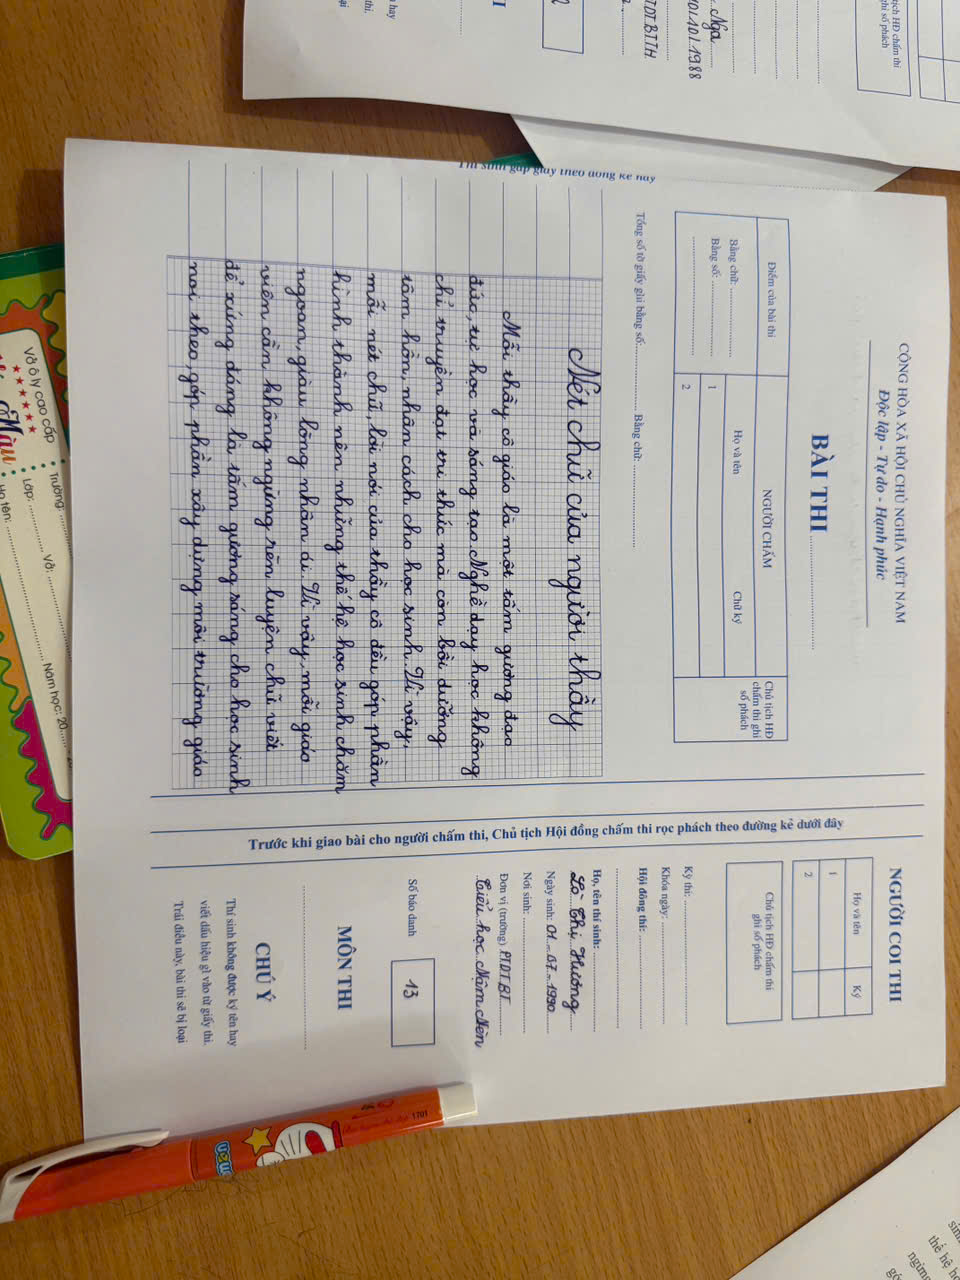 CỘNG HÒA XÃ HỘI CHỦ NGHĨA VIỆT NAM
Độc lập - Tự do - Hạnh phúc
BÀI THI
Điểm của bài thi
NGƯỜI CHẤM
Chủ tịch HĐ
chấm thi ghi
số phách
Bằng chữ:
Bằng số:
Họ và tên
Chữ ký
1
2
Tổng số tờ giấy ghi bằng số:
Bằng chữ:
Thí sinh gấp giấy theo dòng kẻ này
Nét chữ của người thầy
Mỗi thầy cô giáo là một tấm gương đạo
đức, tự học và sáng tạo. Nghề dạy học không
chỉ truyền đạt tri thức mà còn bồi dưỡng
tâm hồn, nhân cách cho học sinh. Vì vậy,
mỗi nét chữ, lời nói của thầy cô đều góp phần
hình thành nên những thế hệ học sinh chăm
ngoan, giàu lòng nhân ái. Vì vậy, mỗi giáo
viên cần không ngừng rèn luyện chữ viết
để xứng đáng là tấm gương sáng cho học sinh
noi theo, góp phần xây dựng môi trường giáo
Trước khi giao bài cho người chấm thi, Chủ tịch Hội đồng chấm thi rọc phách theo đường kẻ dưới đây
NGƯỜI COI THI
Họ và tên
Ký
1
2
Chủ tịch HĐ chấm thi
ghi số phách
Kỳ thi:
Khóa ngày:
Hội đồng thi:
Họ, tên thí sinh:
Lò Thị Hương
Ngày sinh: 01-07-1990
Nơi sinh:
Đơn vị (trường) PTDTBT
Tiểu học Nậm Nèn
Số báo danh
13
MÔN THI
CHÚ Ý
Thí sinh không được ký tên hay
viết dấu hiệu gì vào tờ giấy thi.
Trái điều này, bài thi sẽ bị loại
tịch HĐ chấm thi
ghi số phách
Nga
10/10/1988
TDTBTTH
hay
thi.
Vở ô ly cao cấp
Trường:
Lớp:
Vở:
Họ tên:
Năm học: 20
1701
thế hệ h
ngừn